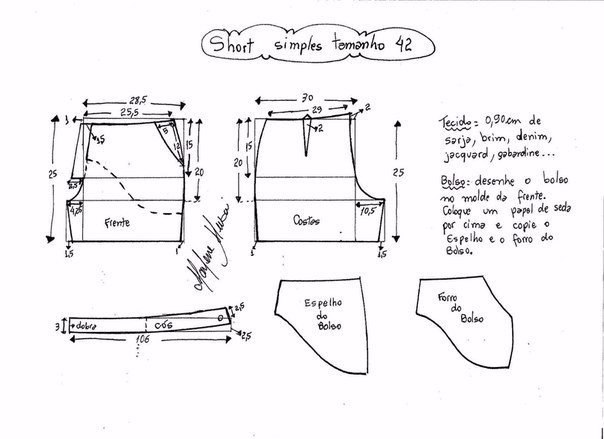 Short simples tamanho 42
28,5
25,5
3
1,5
5
12
15
20
25
5,5
4,5
Frente
1,5
1
30
29
2
2
15
20
25
20
10,5
Costas
1
1,5
Tecido = 0,90cm de
sarja, brim, denim,
jacquard, gabardine...
Bolso: desenhe o bolso
no molde da frente.
Coloque um papel de seda
por cima e copie o
Espelho e o forro do
Bolso.
3
dobra
cós
2,5
2,5
106
Espelho
do
Bolso
Forro
do
Bolso